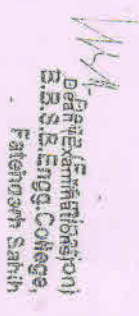 Dean (Examinations)
B.B.S.B.Engg.College,
Fatehgarh Sahib